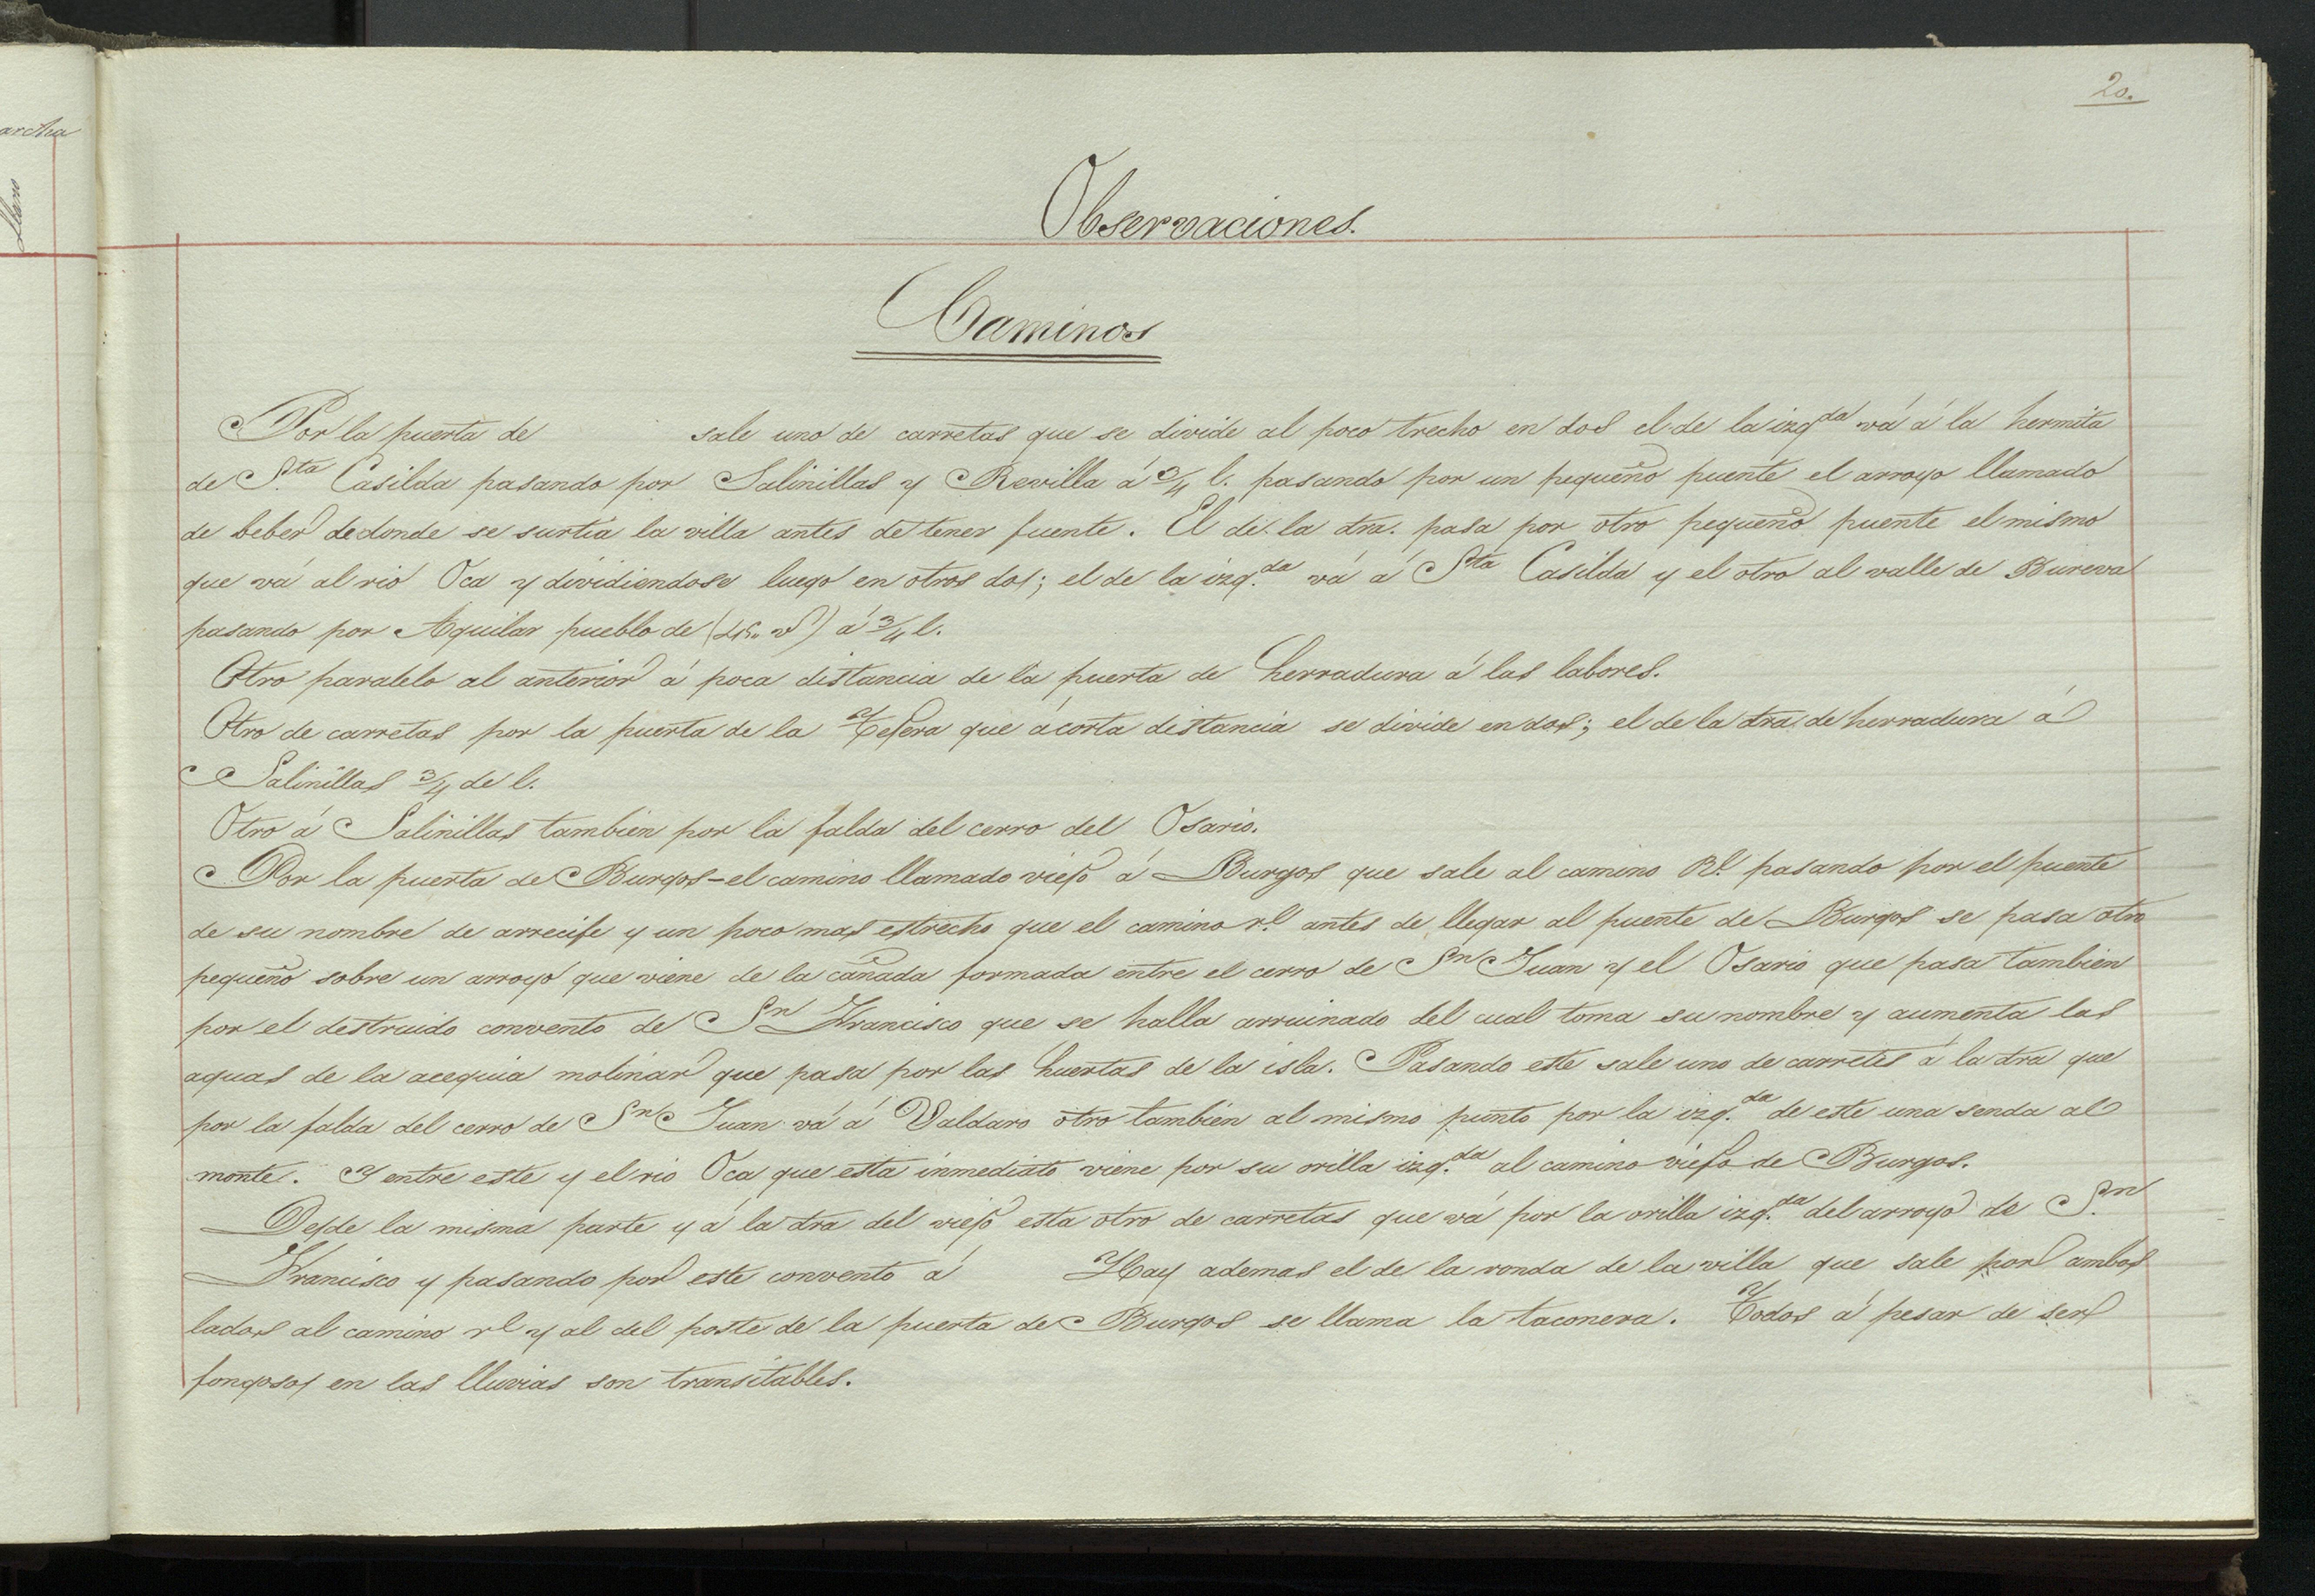 archa
Llano
20.
Observaciones.
Caminos
Por la puerta de sale uno de carretas que se divide al poco trecho en dos el de la izqda vá á la hermita
de S.ta Casilda pasando por Salinillas y Revilla á 3/4 l. pasando por un pequeño puente el arroyo llamado
de beber de donde se surtia la villa antes de tener fuente. El de la dra. pasa por otro pequeño puente el mismo
que vá al rio Oca y dividiendose luego en otros dos; el de la izq.da vá á Sta Casilda y el otro al valle de Bureva
pasando por Aguilar pueblo de á 3/4 l.
Otro paralelo al anterior á poca distancia de la puerta de herradura á las labores.
Otro de carretas por la puerta de la Tejera que á corta distancia se divide en dos; el de la dra. de herradura á
Salinillas 3/4 de l.
Otro á Salinillas tambien por la falda del cerro del Osario.
Por la puerta de Burgos-el camino llamado viejo á Burgos que sale al camino Rl. pasando por el puente
de su nombre de arrecife y un poco mas estrecho que el camino rl. antes de llegar al puente de Burgos se pasa otro
pequeño sobre un arroyo que viene de la cañada formada entre el cerro de Sn Juan y el Osario que pasa tambien
por el destruido convento de Sn Francisco que se halla arruinado del cual toma su nombre y aumenta las
aguas de la acequia molinar que pasa por las huertas de la isla. Pasando este sale uno de carretes á la dra que
por la falda del cerro de Sn Juan vá á Valdaro otro tambien al mismo punto por la izq.da de este una senda al
monte. Y entre este y el rio Oca que esta inmediato viene por su orilla izq.da al camino viejo de Burgos.
Desde la misma parte y á la dra del viejo esta otro de carretas que vá por la orilla izq.da del arroyo de S.n
Francisco y pasando por este convento á Hay ademas el de la ronda de la villa que sale por ambos
lados al camino rl y al del poste de la puerta de Burgos se llama la taconera. Todos á pesar de ser
fongosos en las lluvias son transitables.